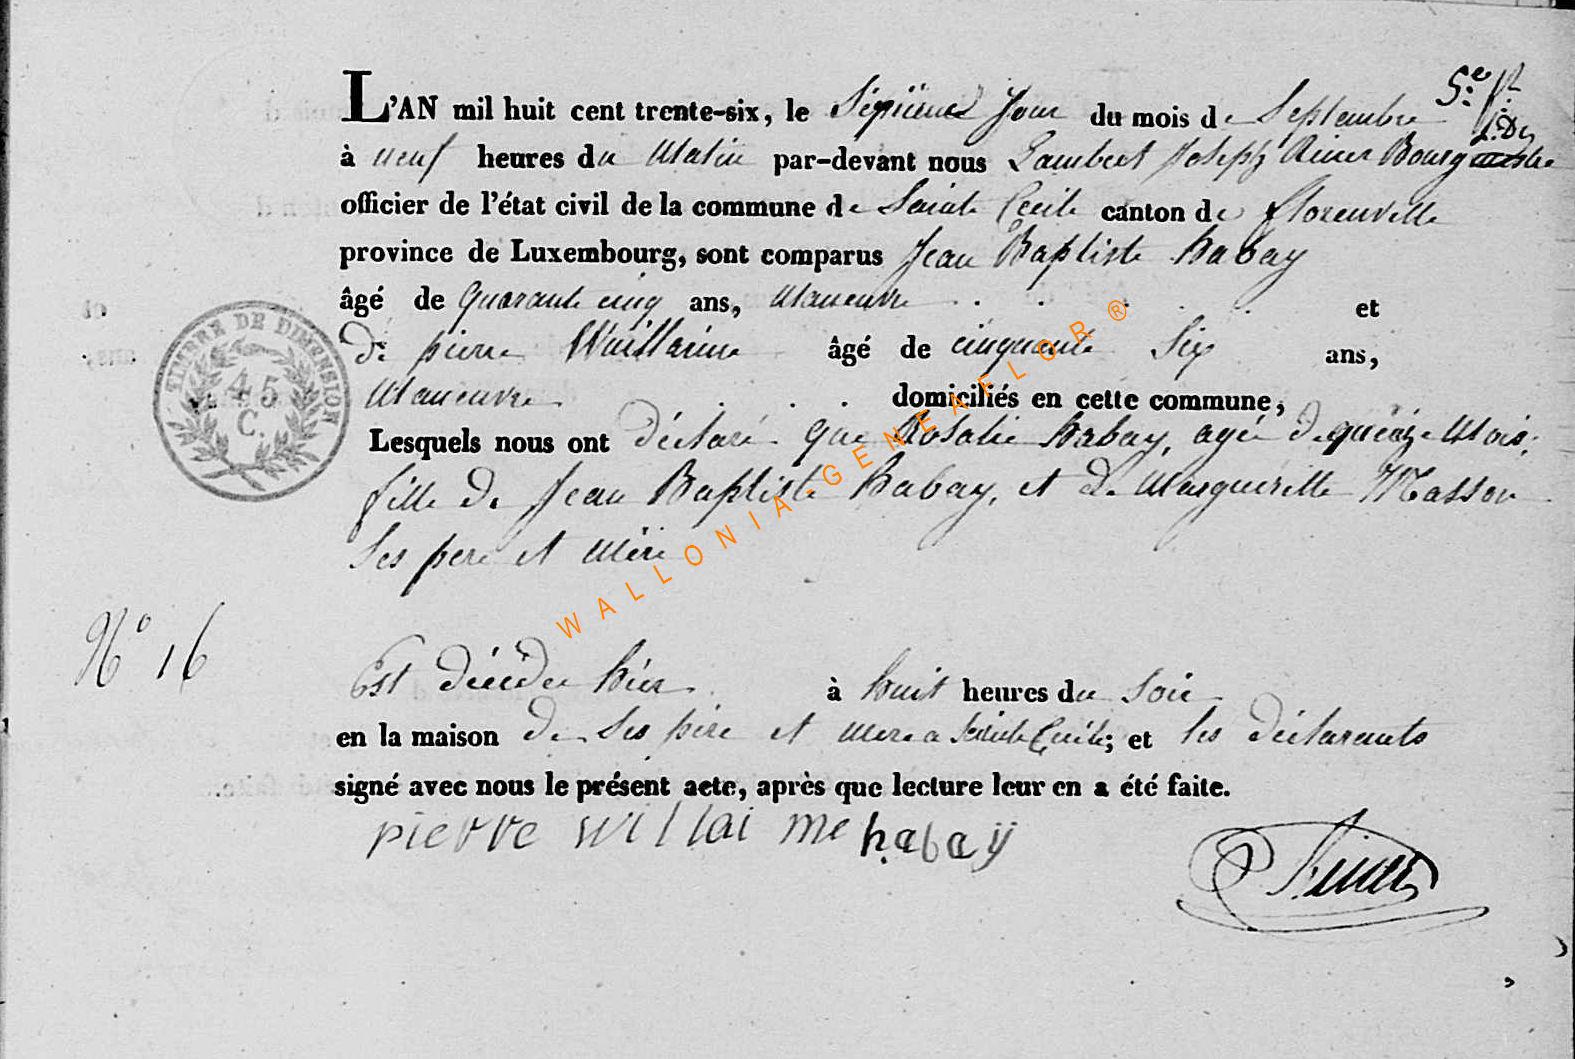 L'AN mil huit cent trente-six, le Septieme Jour du mois de Septembre
à neuf heures du Matin par-devant nous Lambert Joseph Riner Bourgmestre
officier de l'état civil de la commune de Sainte Cecile canton de florenville
province de Luxembourg, sont comparus Jean Baptiste habay
âgé de quarante cinq ans, Maneuvre et
de pierre Wuillaime âgé de cinquante Six ans,
Maneuvre domiciliés en cette commune,
Lesquels nous ont déclaré que Rosalie habay, agée de quinze Mois,
fille de Jean Baptiste habay, et de Margueritte Masson
Ses pere et mère
Est décédée hier à huit heures du Soir
en la maison de Ses père et mere a Sainte Cecile; et les déclarants
signé avec nous le présent acte, après que lecture leur en a été faite.
pierre willai me habaÿ
N° 16
TIMBRE DE DIMENSION
45
C.
WALLONIA-GENEAFLOR®